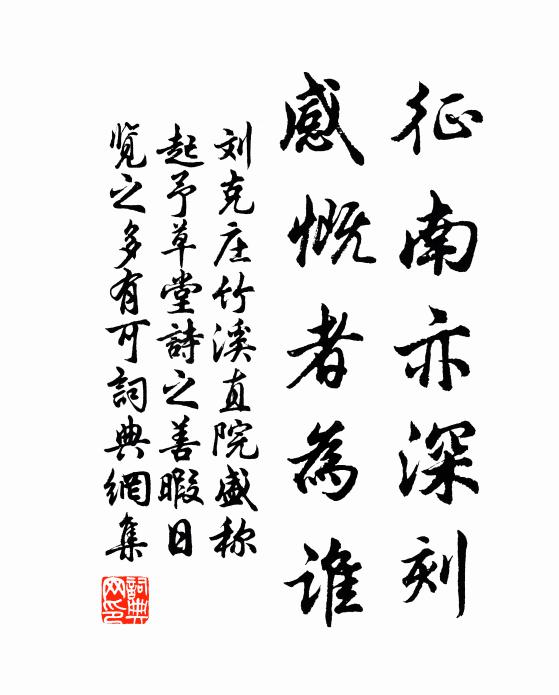 征南亦深刻
感慨者為誰
刘克庄竹溪直院盛称
起予草堂詩之善暇日
覽之多有可詞典網集
詞典網印